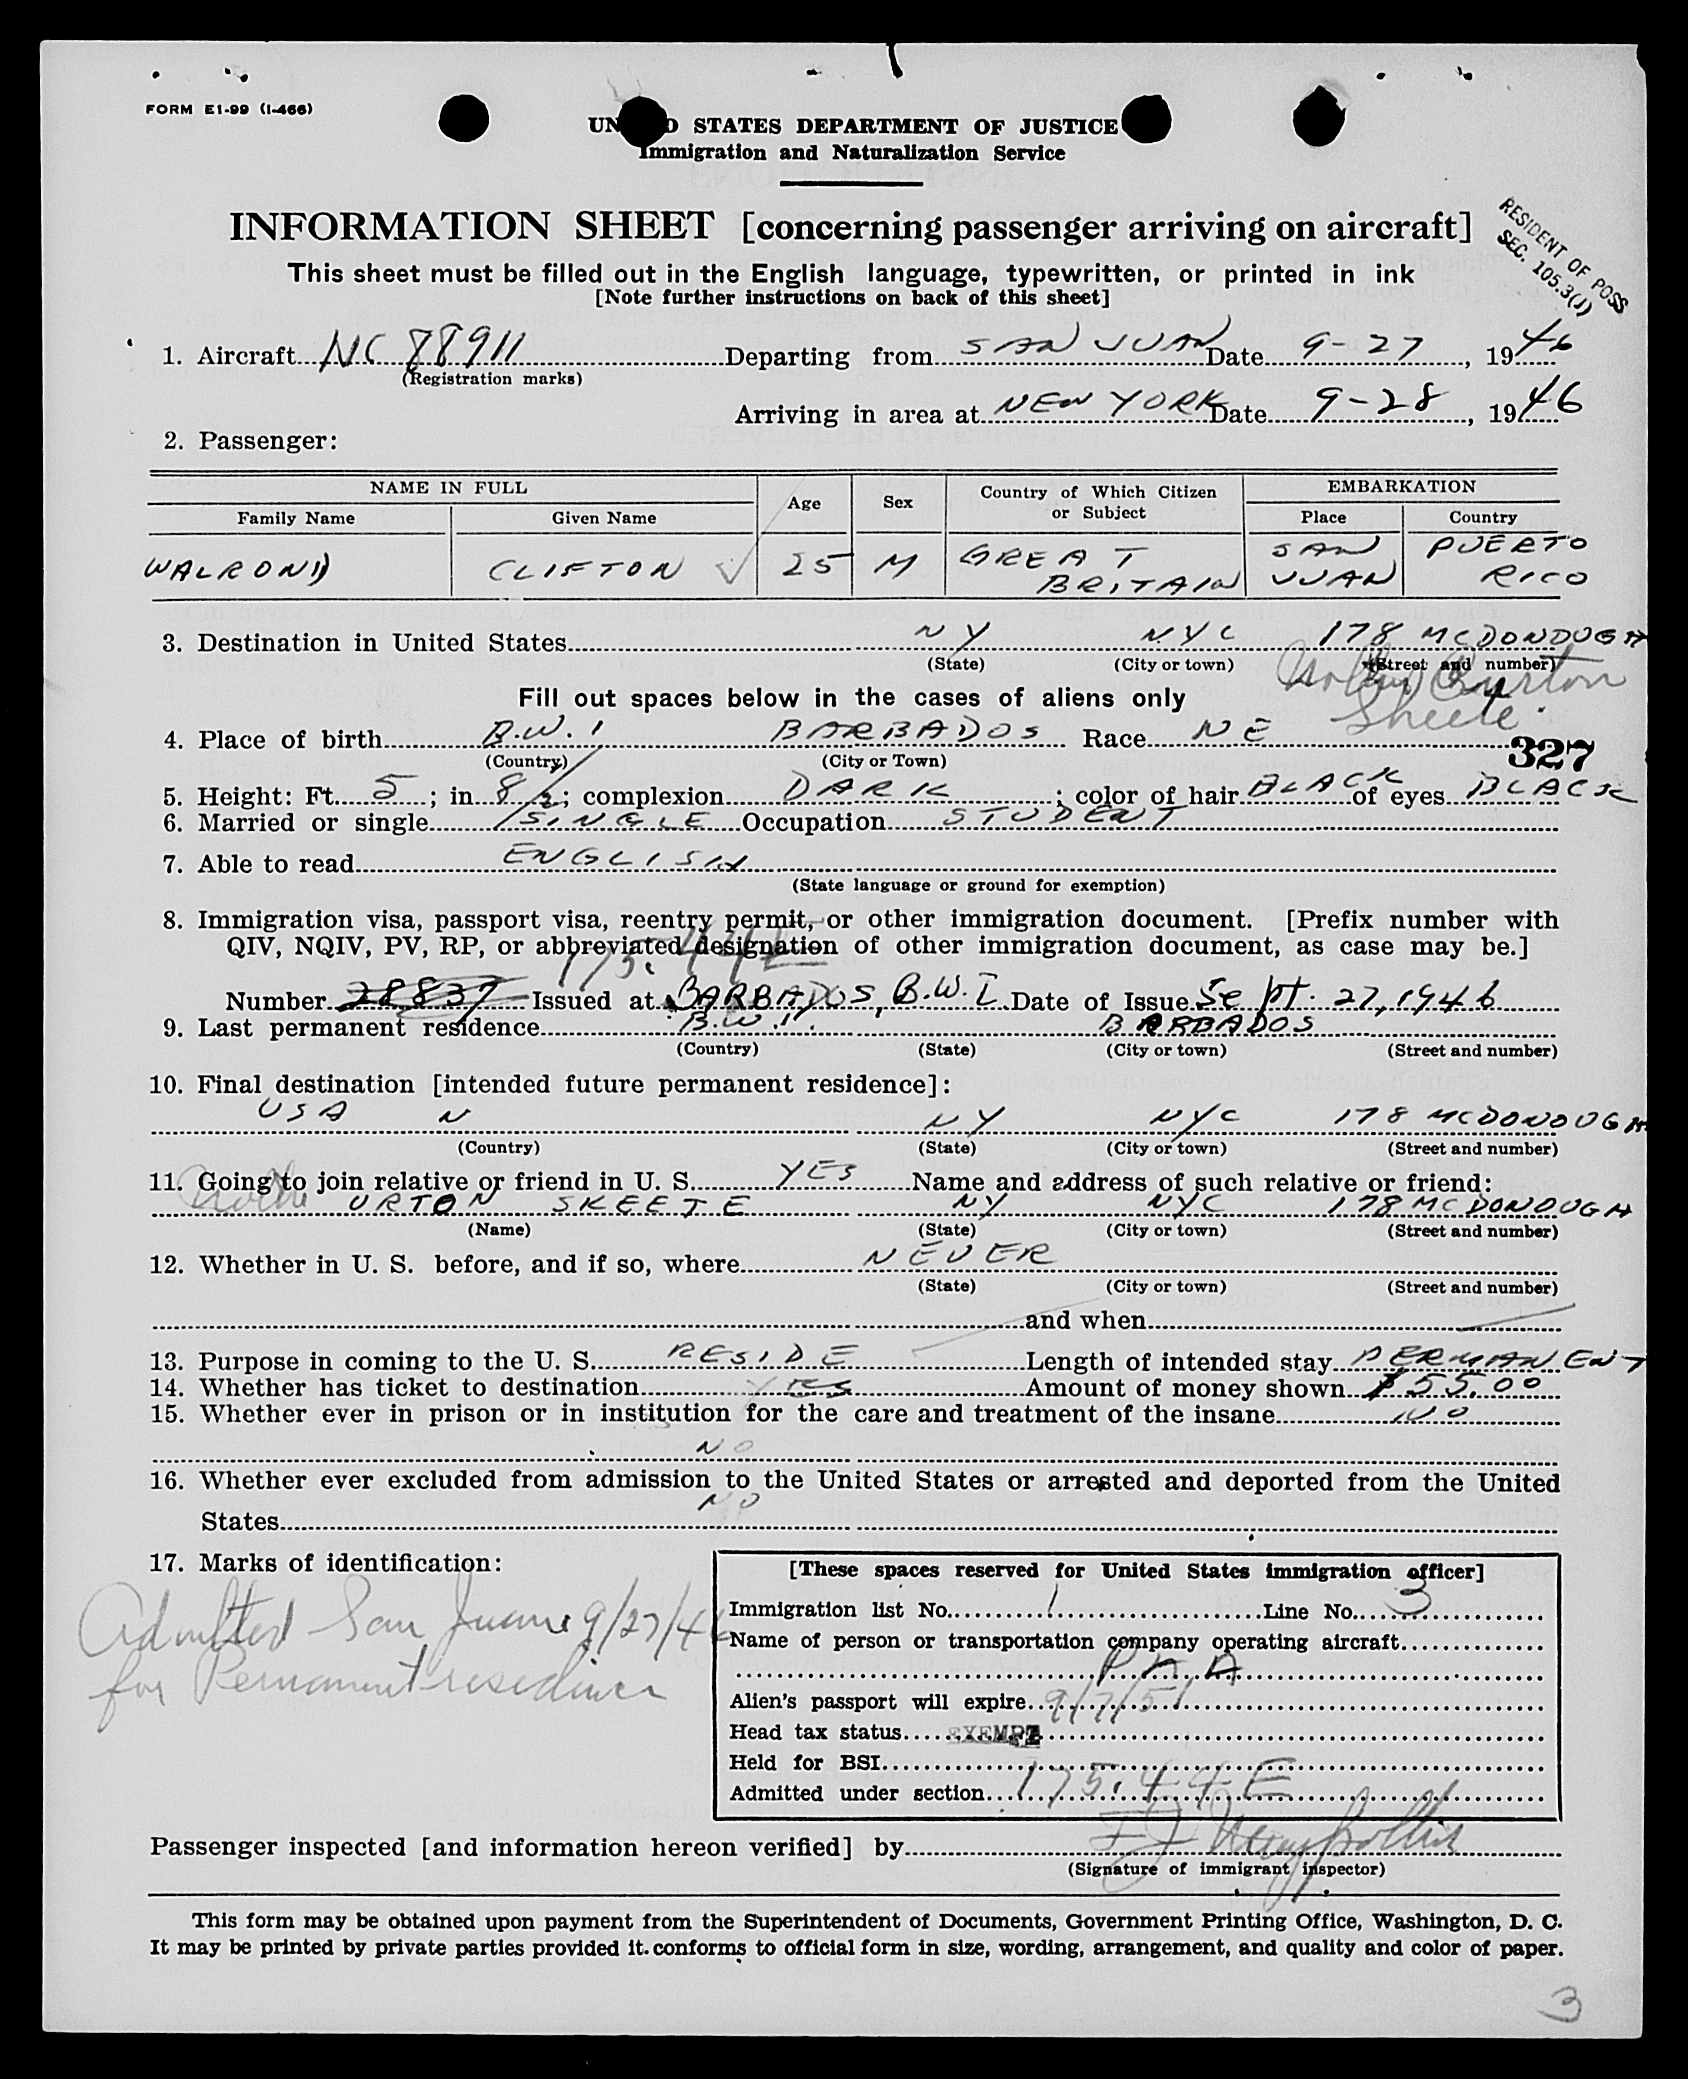 FORM E1-99 (I-466)
UNITED STATES DEPARTMENT OF JUSTICE
Immigration and Naturalization Service
INFORMATION SHEET [concerning passenger arriving on aircraft]
RESIDENT OF POSS
SEC. 105.3(J)
This sheet must be filled out in the English language, typewritten, or printed in ink
[Note further instructions on back of this sheet]
1. Aircraft NC 88911 Departing from SAN JUAN Date 9-27, 1946
(Registration marks)
Arriving in area at NEW YORK Date 9-28, 1946
2. Passenger:
NAME IN FULL Age Sex Country of Which Citizen or Subject EMBARKATION
Family Name Given Name Place Country
WALROND CLIFTON 25 M GREAT BRITAIN SAN JUAN PUERTO RICO
3. Destination in United States NY NYC 178 MCDONOUGH
(State) (City or town) (Street and number)
Burton
Fill out spaces below in the cases of aliens only
Skeete
4. Place of birth B.W.I BARBADOS Race NE
327
(Country) (City or Town)
5. Height: Ft. 5; in. 8 1/2; complexion DARK; color of hair BLACK of eyes BLACK
6. Married or single SINGLE Occupation STUDENT
7. Able to read ENGLISH
(State language or ground for exemption)
8. Immigration visa, passport visa, reentry permit, or other immigration document. [Prefix number with
QIV, NQIV, PV, RP, or abbreviated designation of other immigration document, as case may be.]
175.44E
Number 28837 Issued at BARBADOS, B.W.I. Date of Issue Sept. 27, 1946
9. Last permanent residence B.W.I. BARBADOS
(Country) (State) (City or town) (Street and number)
10. Final destination [intended future permanent residence]:
USA N NY NYC 178 MCDONOUGH
(Country) (State) (City or town) (Street and number)
11. Going to join relative or friend in U. S. YES Name and address of such relative or friend:
URTON SKEETE NY NYC 178 MCDONOUGH
(Name) (State) (City or town) (Street and number)
12. Whether in U. S. before, and if so, where NEVER
(State) (City or town) (Street and number)
and when
13. Purpose in coming to the U. S. RESIDE Length of intended stay PERMANENT
14. Whether has ticket to destination YES Amount of money shown $55.00
15. Whether ever in prison or in institution for the care and treatment of the insane NO
NO
16. Whether ever excluded from admission to the United States or arrested and deported from the United
States NO
17. Marks of identification:
Admitted San Juan 9/27/46
for Permanent residence
[These spaces reserved for United States immigration officer]
Immigration list No. 1 Line No. 3
Name of person or transportation company operating aircraft
PAA
Alien's passport will expire 9/7/51
Head tax status EXEMPT
Held for BSI
Admitted under section 175.44E
Passenger inspected [and information hereon verified] by
(Signature of immigrant inspector)
This form may be obtained upon payment from the Superintendent of Documents, Government Printing Office, Washington, D. C.
It may be printed by private parties provided it conforms to official form in size, wording, arrangement, and quality and color of paper.
3